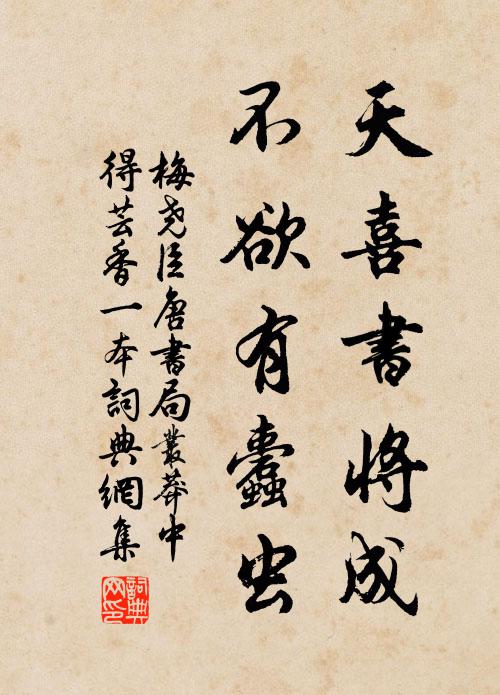 天喜書將成
不欲有蠹虫
梅尧臣唐書局叢莽中
得芸香一本詞典網集
詞典
网印